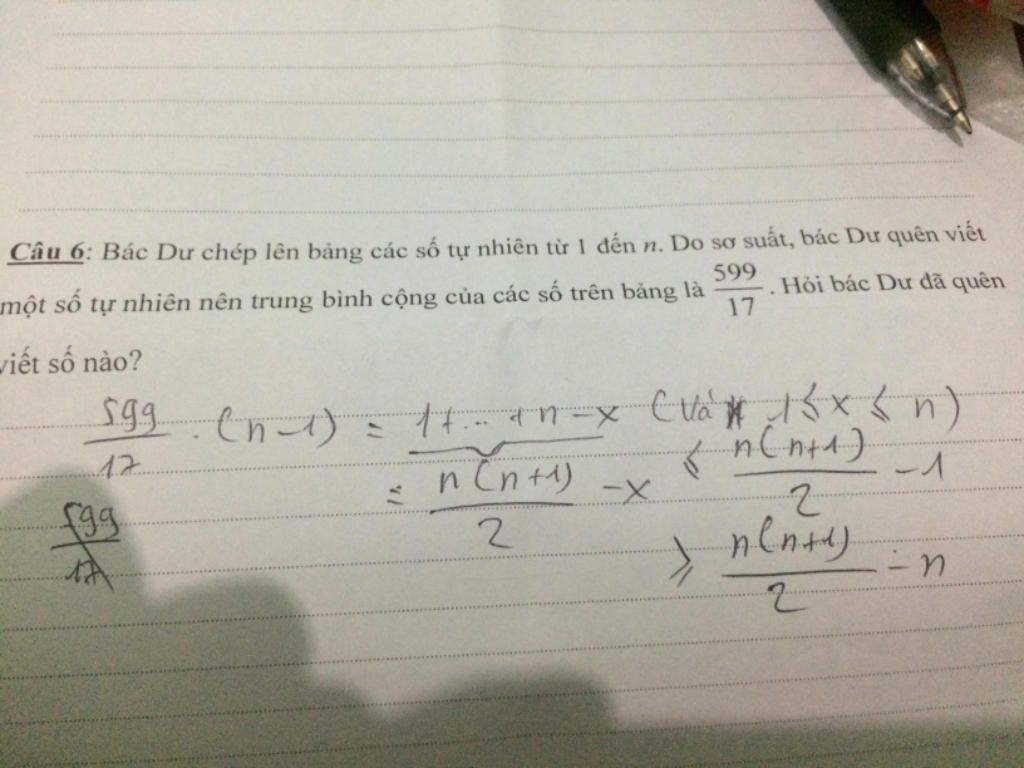 Câu 6: Bác Dư chép lên bảng các số tự nhiên từ 1 đến n. Do sơ suất, bác Dư quên viết
một số tự nhiên nên trung bình cộng của các số trên bảng là 599/17. Hỏi bác Dư đã quên
viết số nào?
599/17 . (n-1) = 1+...+n-x (và 1 ≤ x ≤ n)
= n(n+1)/2 -x ≤ n(n+1)/2 -1
599/17
≥ n(n+1)/2 -n